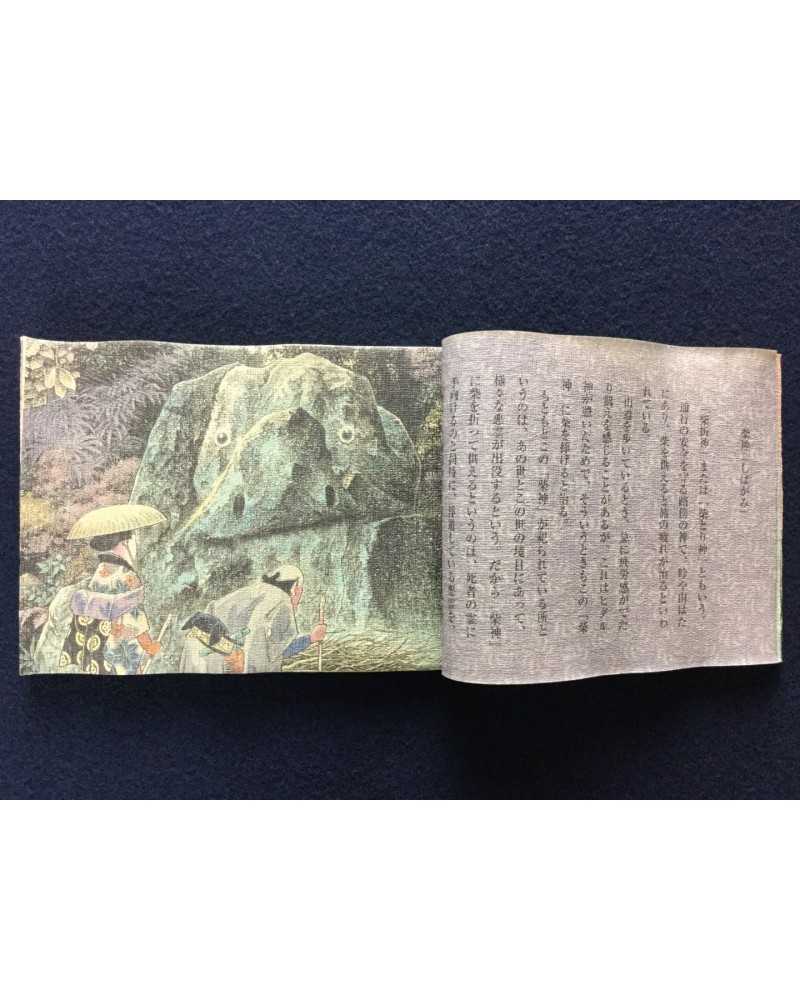 柴神(しばがみ)
「柴折神」または「柴とり神」ともいう。
通行の安全を守る路傍の神で、峠や山はた
にあり、柴を供えると足の疲れが治るといわ
れている。
山道を歩いているとき、急に疲労感がでた
り飢えを感じることがあるが、これはヒダル
神が憑いたためで、そういうときもこの「柴
神」に柴を捧げると治る。
もともとこの「柴神」が祀られている所と
いうのは、あの世とこの世の境目にあって、
様々な悪霊が出没するという。だから「柴神」
に柴を折って供えるというのは、死者の霊に
手向けるのと同時に、